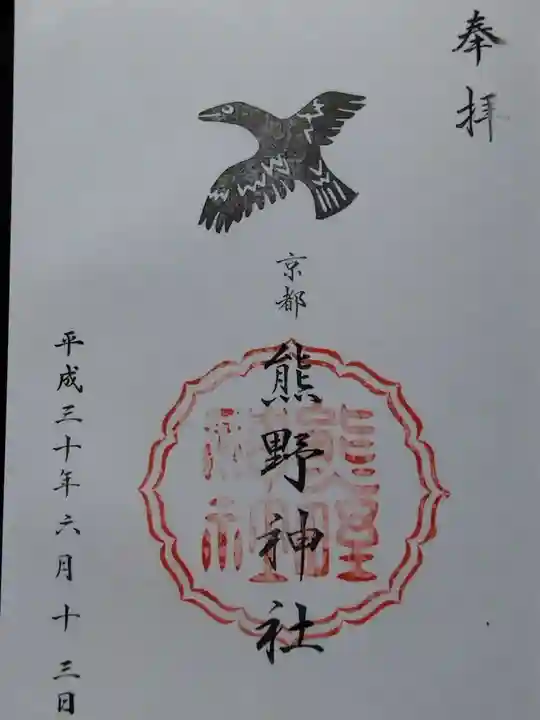 奉拝
京都
熊野神社
平成三十年六月十三日